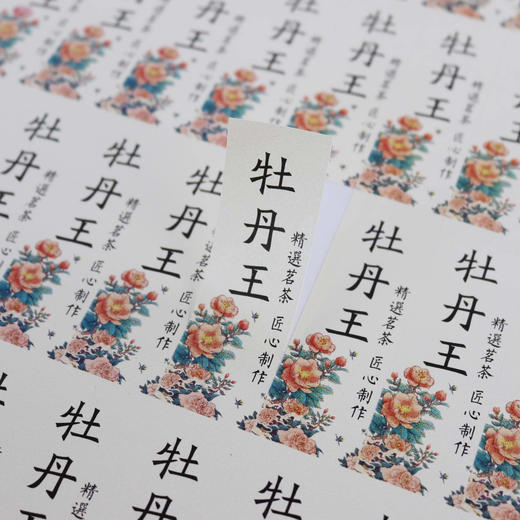 牡丹王
精選茗茶 匠心制作